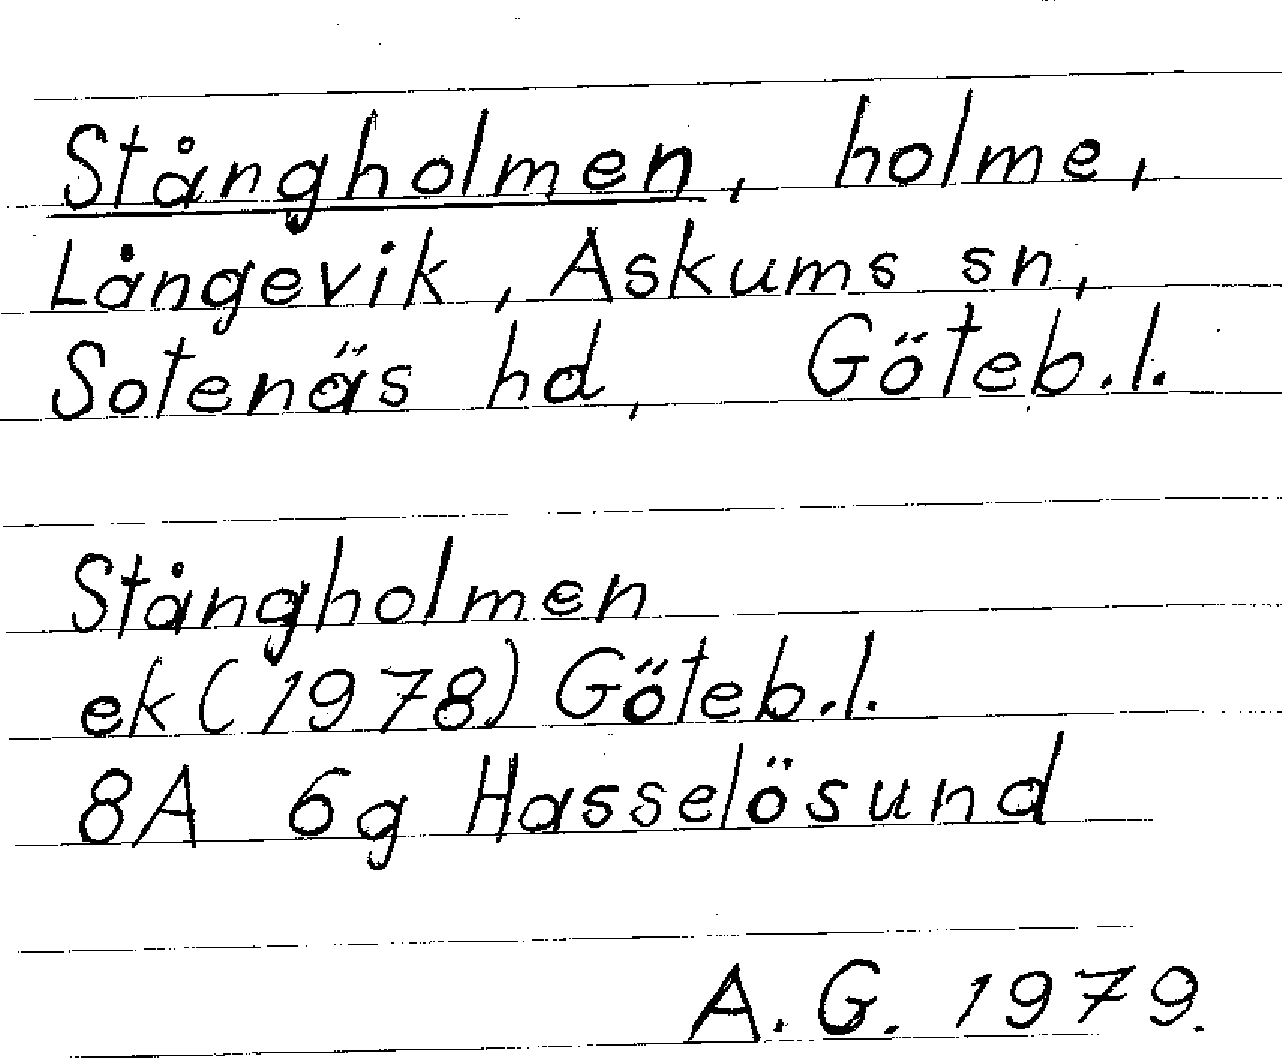 Stångholmen, holme,
Långevik, Askums sn,
Sotenäs hd, Göteb.l.
Stångholmen
ek (1978) Göteb.l.
8A 6g Hasselösund
A. G. 1979.